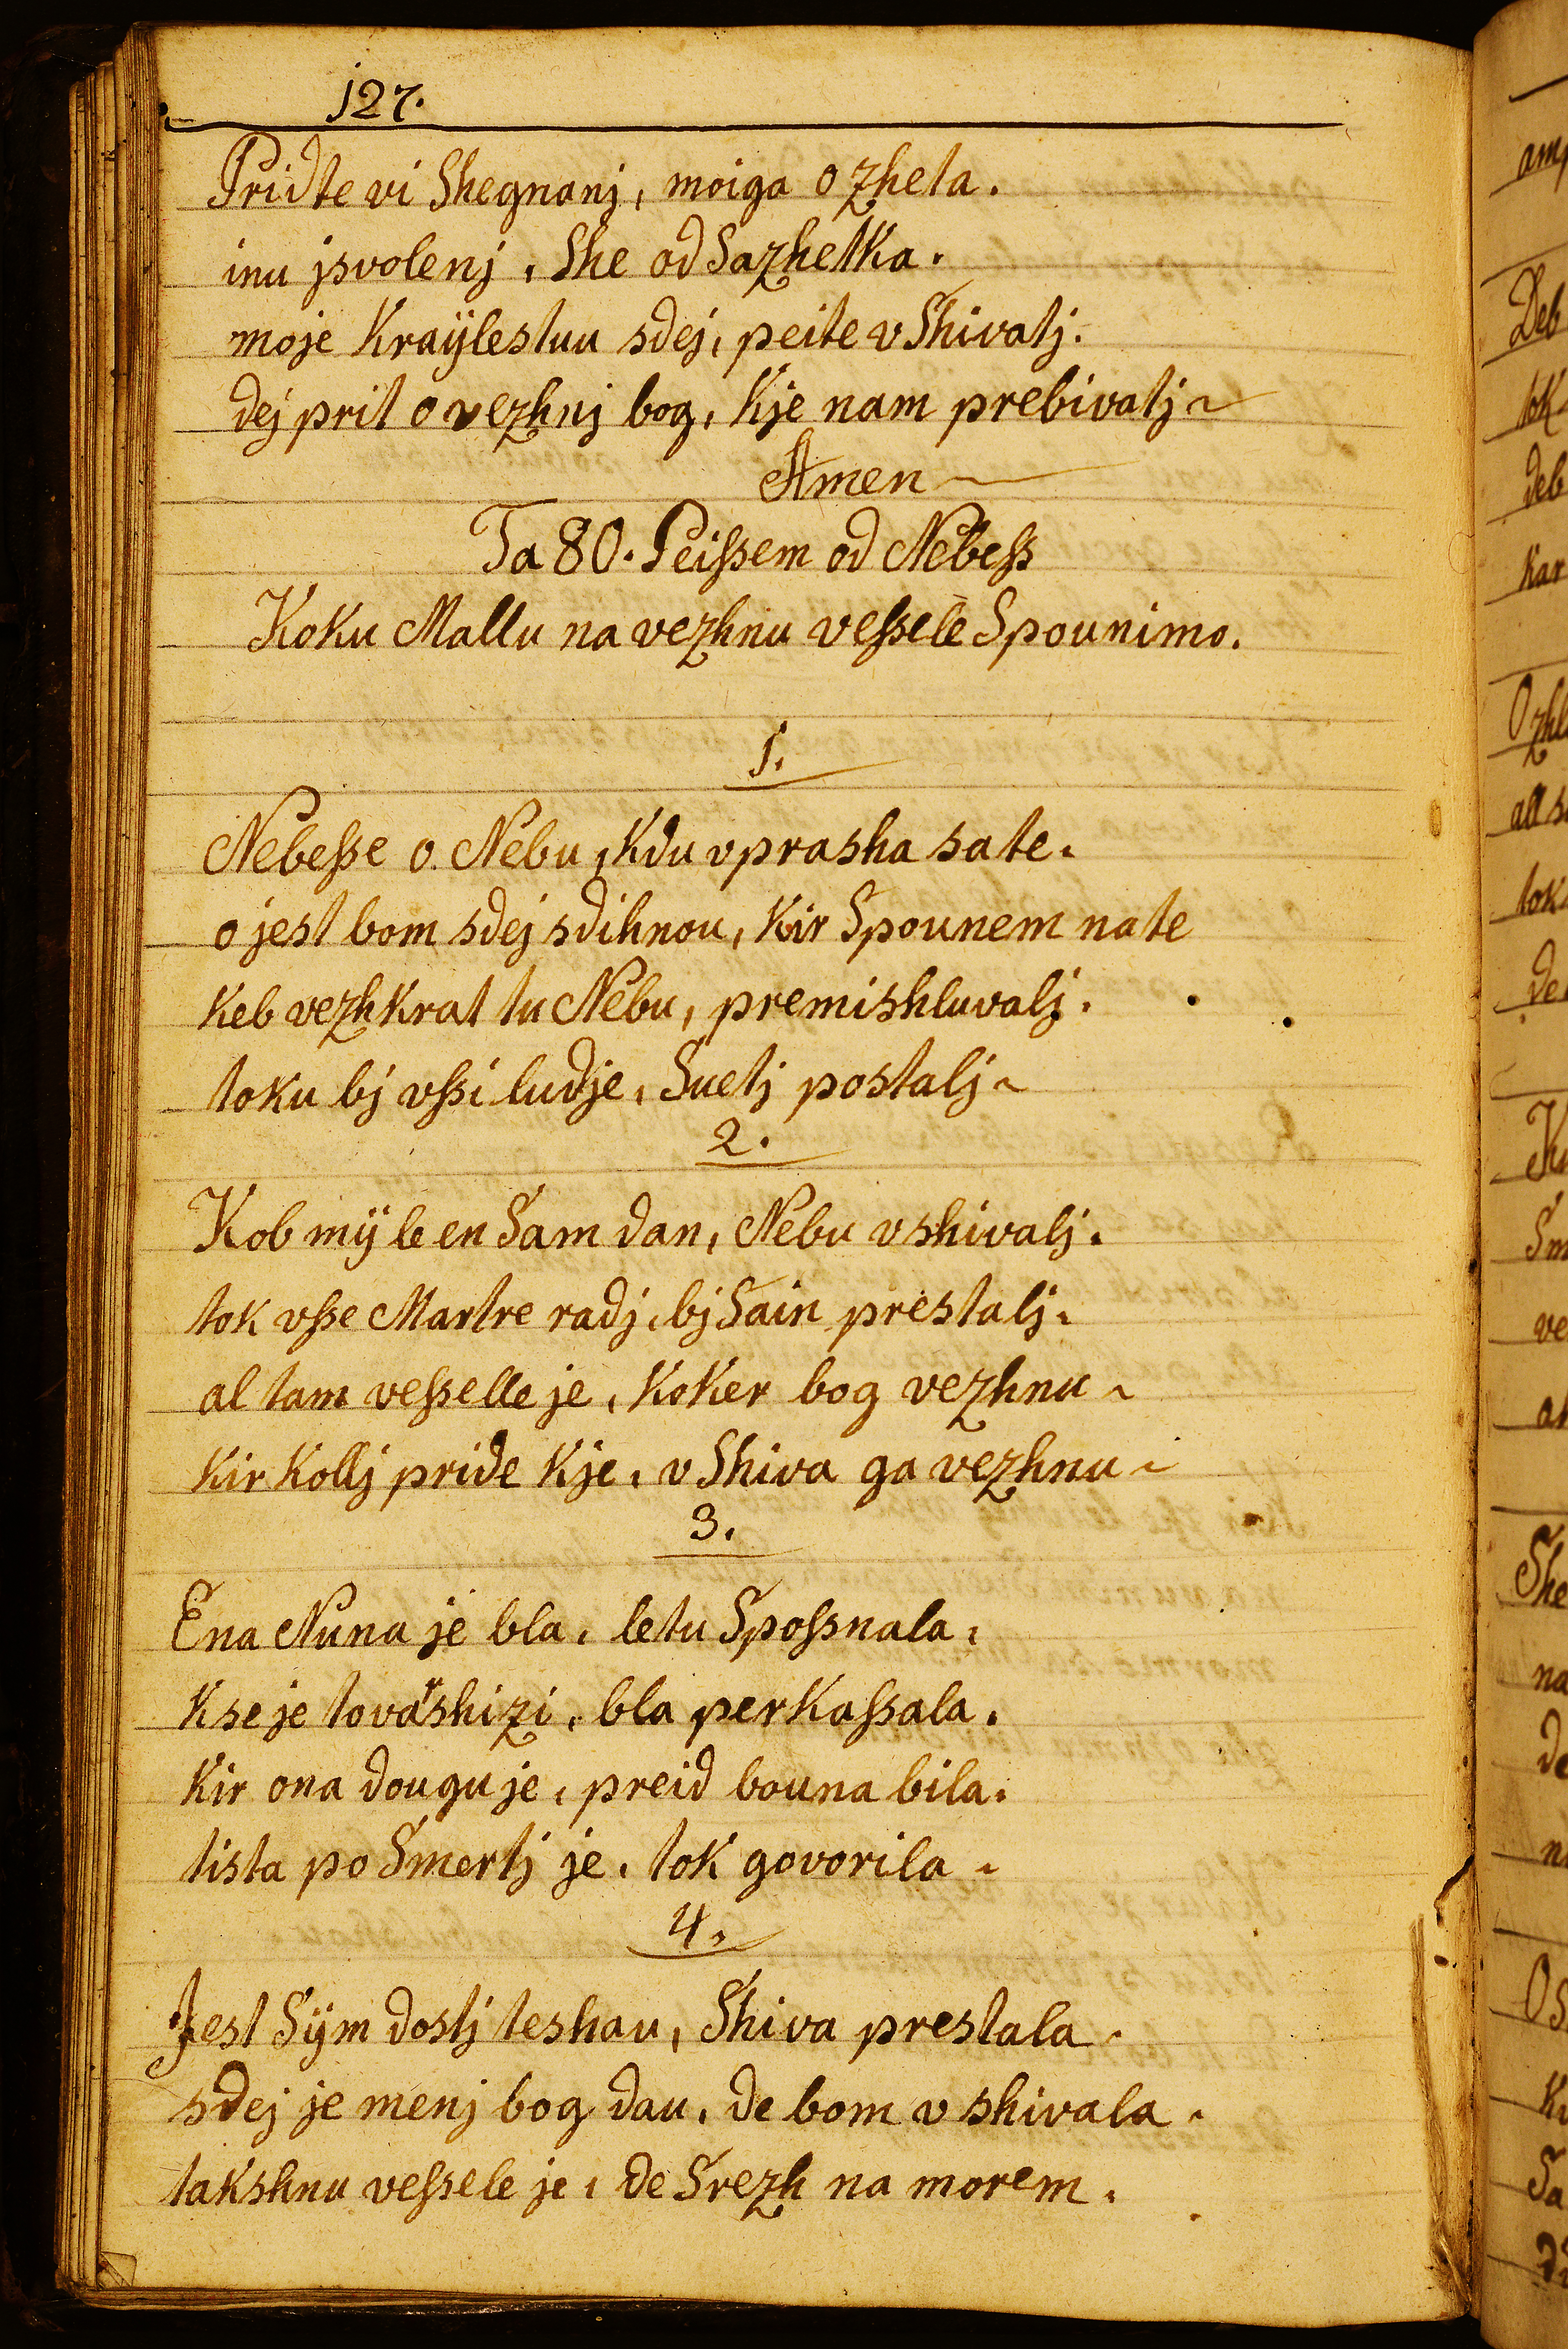 127.
Pridte vi Shegnanj, moiga Ozheta.
inu jsvolenj, She od Sazhetka.
moje Kraÿlestuu sdej, peite v Shivatj.
dej prit o vezhnj bog, Kje nam prebivatj ~
Amen
Ta 80. Peißem od Nebeß
Koku Mallu na vezhnu veßele Spounimo.
1.
Nebeße o. Nebu, Kdu vprasha sate.
o jest bom sdej sdihnou, Kir Spounem nate
Keb vezhkrat tu Nebu, premishluvalj.
toku bj vßi ludje, Suetj postalj ~
2.
Kob mÿ le en Sam dan, Nebu vshivalj.
tok vße Martre radj, bj Sain prestalj.
al tam veßelle je, Koker bog vezhnu ~
Kir Kollj pride Kje, v Shiva ga vezhnu ~
3.
Ena Nuna je bla, letu Spoßnala,
Kse je tovarshizi, bla perKaßala.
Kir ona dougu je, preid bouna bila.
tista po Smertj je, tok govorila ~
4.
Jest Sÿm dostj teshau, Shiva prestala ~
sdej je menj bog dau, de bom vshivala ~
takshnu veßele je, de Srezh na morem.